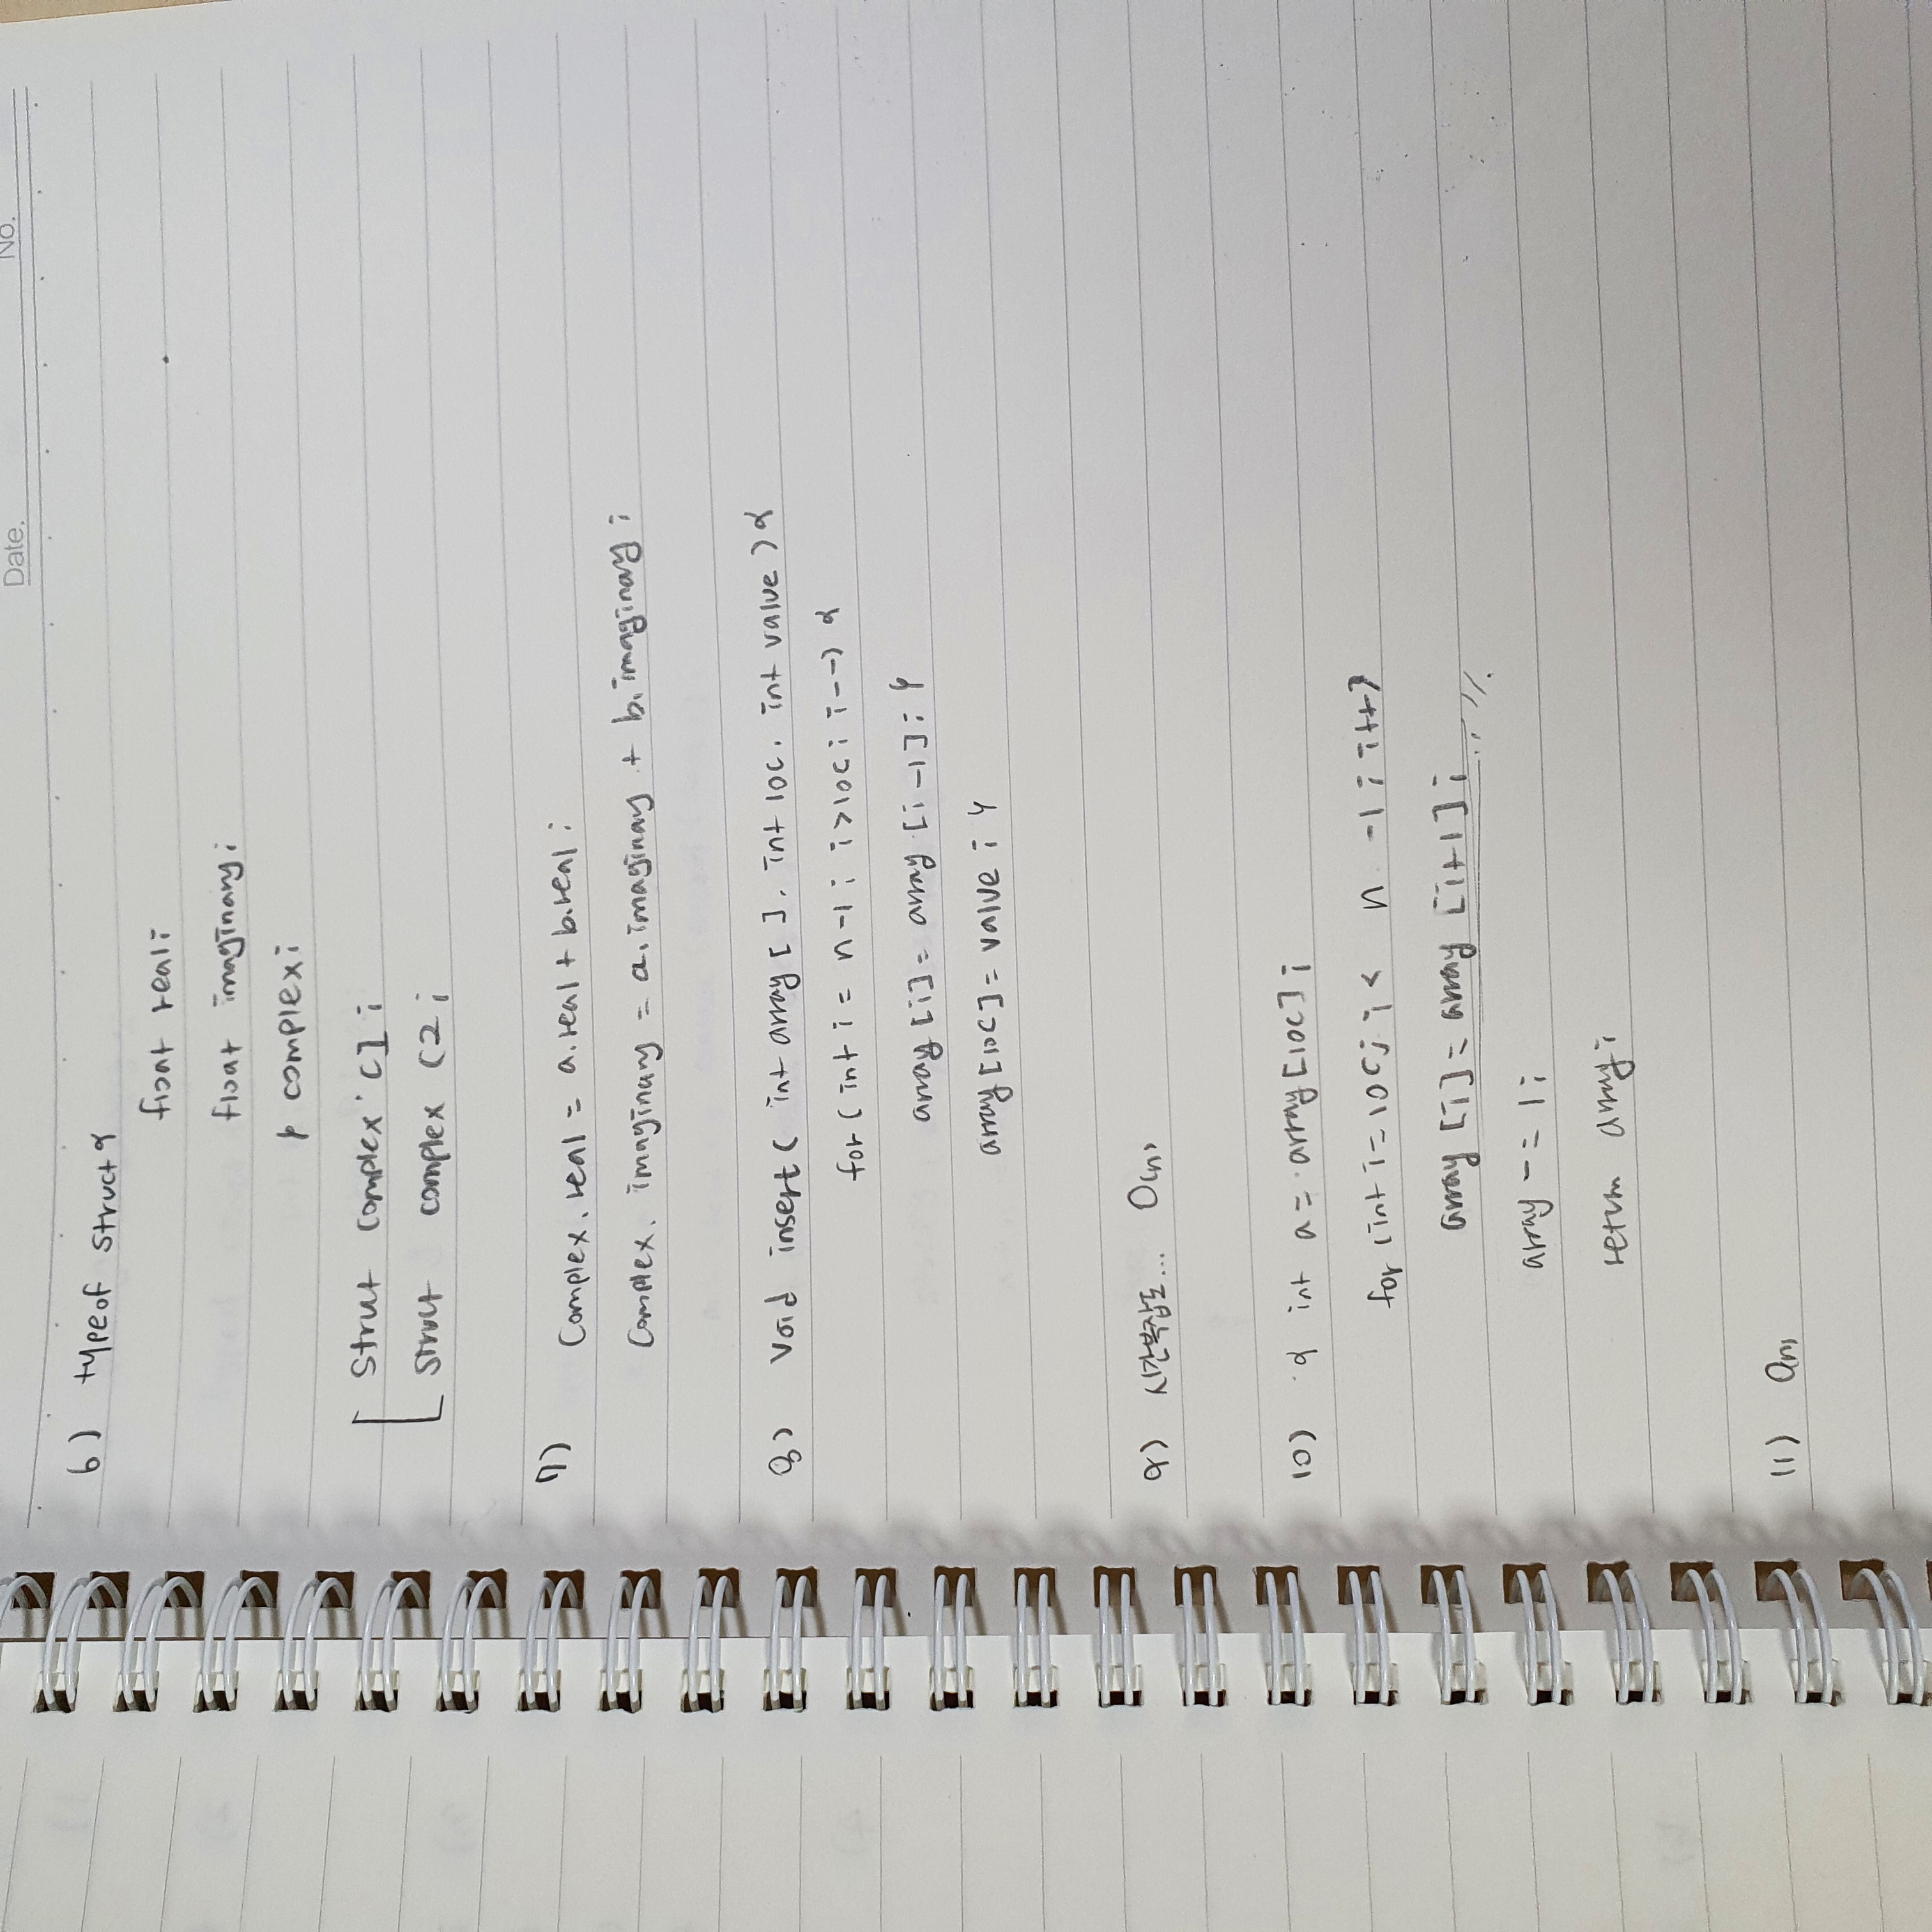 Date. No.
6) typeof struct {
float real;
float imaginary;
} complex;
Strut complex c1;
struct complex c2;
7) Complex.real = a.real + b.real;
Complex. imaginary = a.imaginay + b.imaginary;
8) Void insert( int array[ ], int loc, int value ) {
for( int i = n-1; i>loc; i--) {
array[i]= array [i-1]; }
array[loc]= value; }
9) 시간복잡도... O(n)
10) { int a= array[loc];
for (int i=loc; i< n -1; i++)
array [i]= array [i+1];
array -= 1;
return array;
11) O(n)